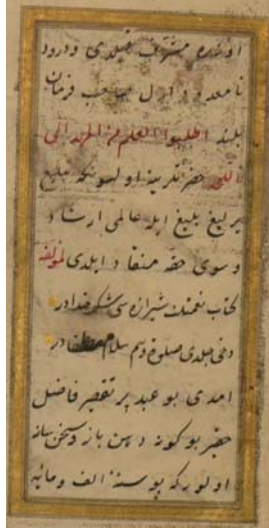 اوزره مشرف قیلدی و درود
نامعدود اول صاحب فرمان
بلند اطلبوا العلم من المهد الی
اللحد حضرتلرینه اولسونکه تبلیغ
یرلیغ بلیغ ایله عالمی ارشاد
و سوی حقه منقاد ایلدی لمؤلفه
کتاب نعمتك شیرازه سی شکر خدادر
دخی جلدی صلوة و هم سلام مصطفادر
امدی بو عبد پر تقصیر فاضل
حقیر بو کونه دهن باز و سخن ساز
اولور که بو سنه الف و مائه